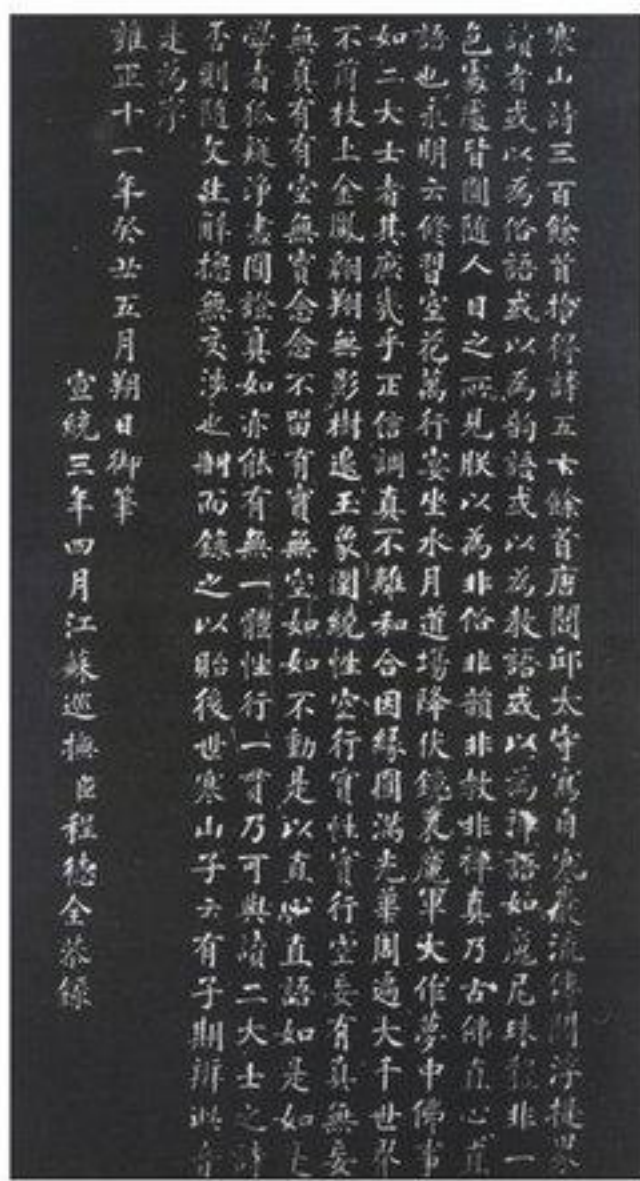 寒山詩三百餘首拾得詩五十餘首唐閭邱太守寫自寒巖流傳閻浮提界
讀者或以為俗語或以為韵語或以為教語或以為禪語如摩尼珠體非一
色處處皆圓隨人目之所見朕以為非俗非韻非教非禪真乃古佛直心直
語也永明云修習空花萬行宴坐水月道場降伏鏡裏魔軍大作夢中佛事
如二大士者其庶幾乎正信調真不離和合因緣圓滿光華周遍大千世界
不萌枝上金鳳翱翔無影樹邊玉象圍繞性空行實性實行空妄有真無妄
無真有有空無實念念不留有實無空如如不動是以直心直語如是如是
學者狐疑淨盡圓證真如亦能有無一體性行一貫乃可與讀二大士之詩
否則隨文生解總無交涉也刪而錄之以貽後世寒山子云有子期辨此音
是為序
雍正十一年癸丑五月朔日御筆
宣統三年四月江蘇巡撫臣程德全恭錄